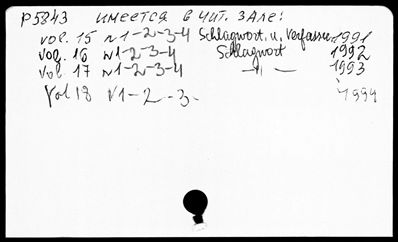 P5843 имеется в чит. зале:
vol. 15 N1-2-3-4 Schlagwort. u. Verfasser 1991
vol. 16 N1-2-3-4 Schlagwort 1992
vol. 17 N1-2-3-4 —"— 1993
Vol 18 N1-2-3- 1994